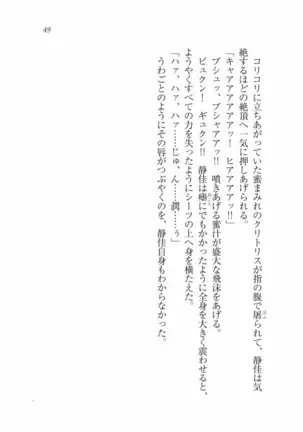 49
コリコリに立ちあがっていた蜜まみれのクリトリスが指の腹で屠られて、静佳は気
絶するほどの絶頂へ一気に押しあげられる。
「キャアアアアアッ！　ヒアアアアッ!!」
ブシュッ、ブシャアアッ!!　噴きあげる蜜汁が盛大な飛沫をあげる。
ビュクン！　ギュクン!!　静佳は瘧にでもかかったように全身を大きく震わせると、
ようやくすべての力を失ったようにシーツの上へ身を横たえた。
「ハァ、ハァ、ハァ……じゅ、ん……潤……ぅ」
うわごとのようにその唇がつぶやくのを、静佳自身もわからなかった。